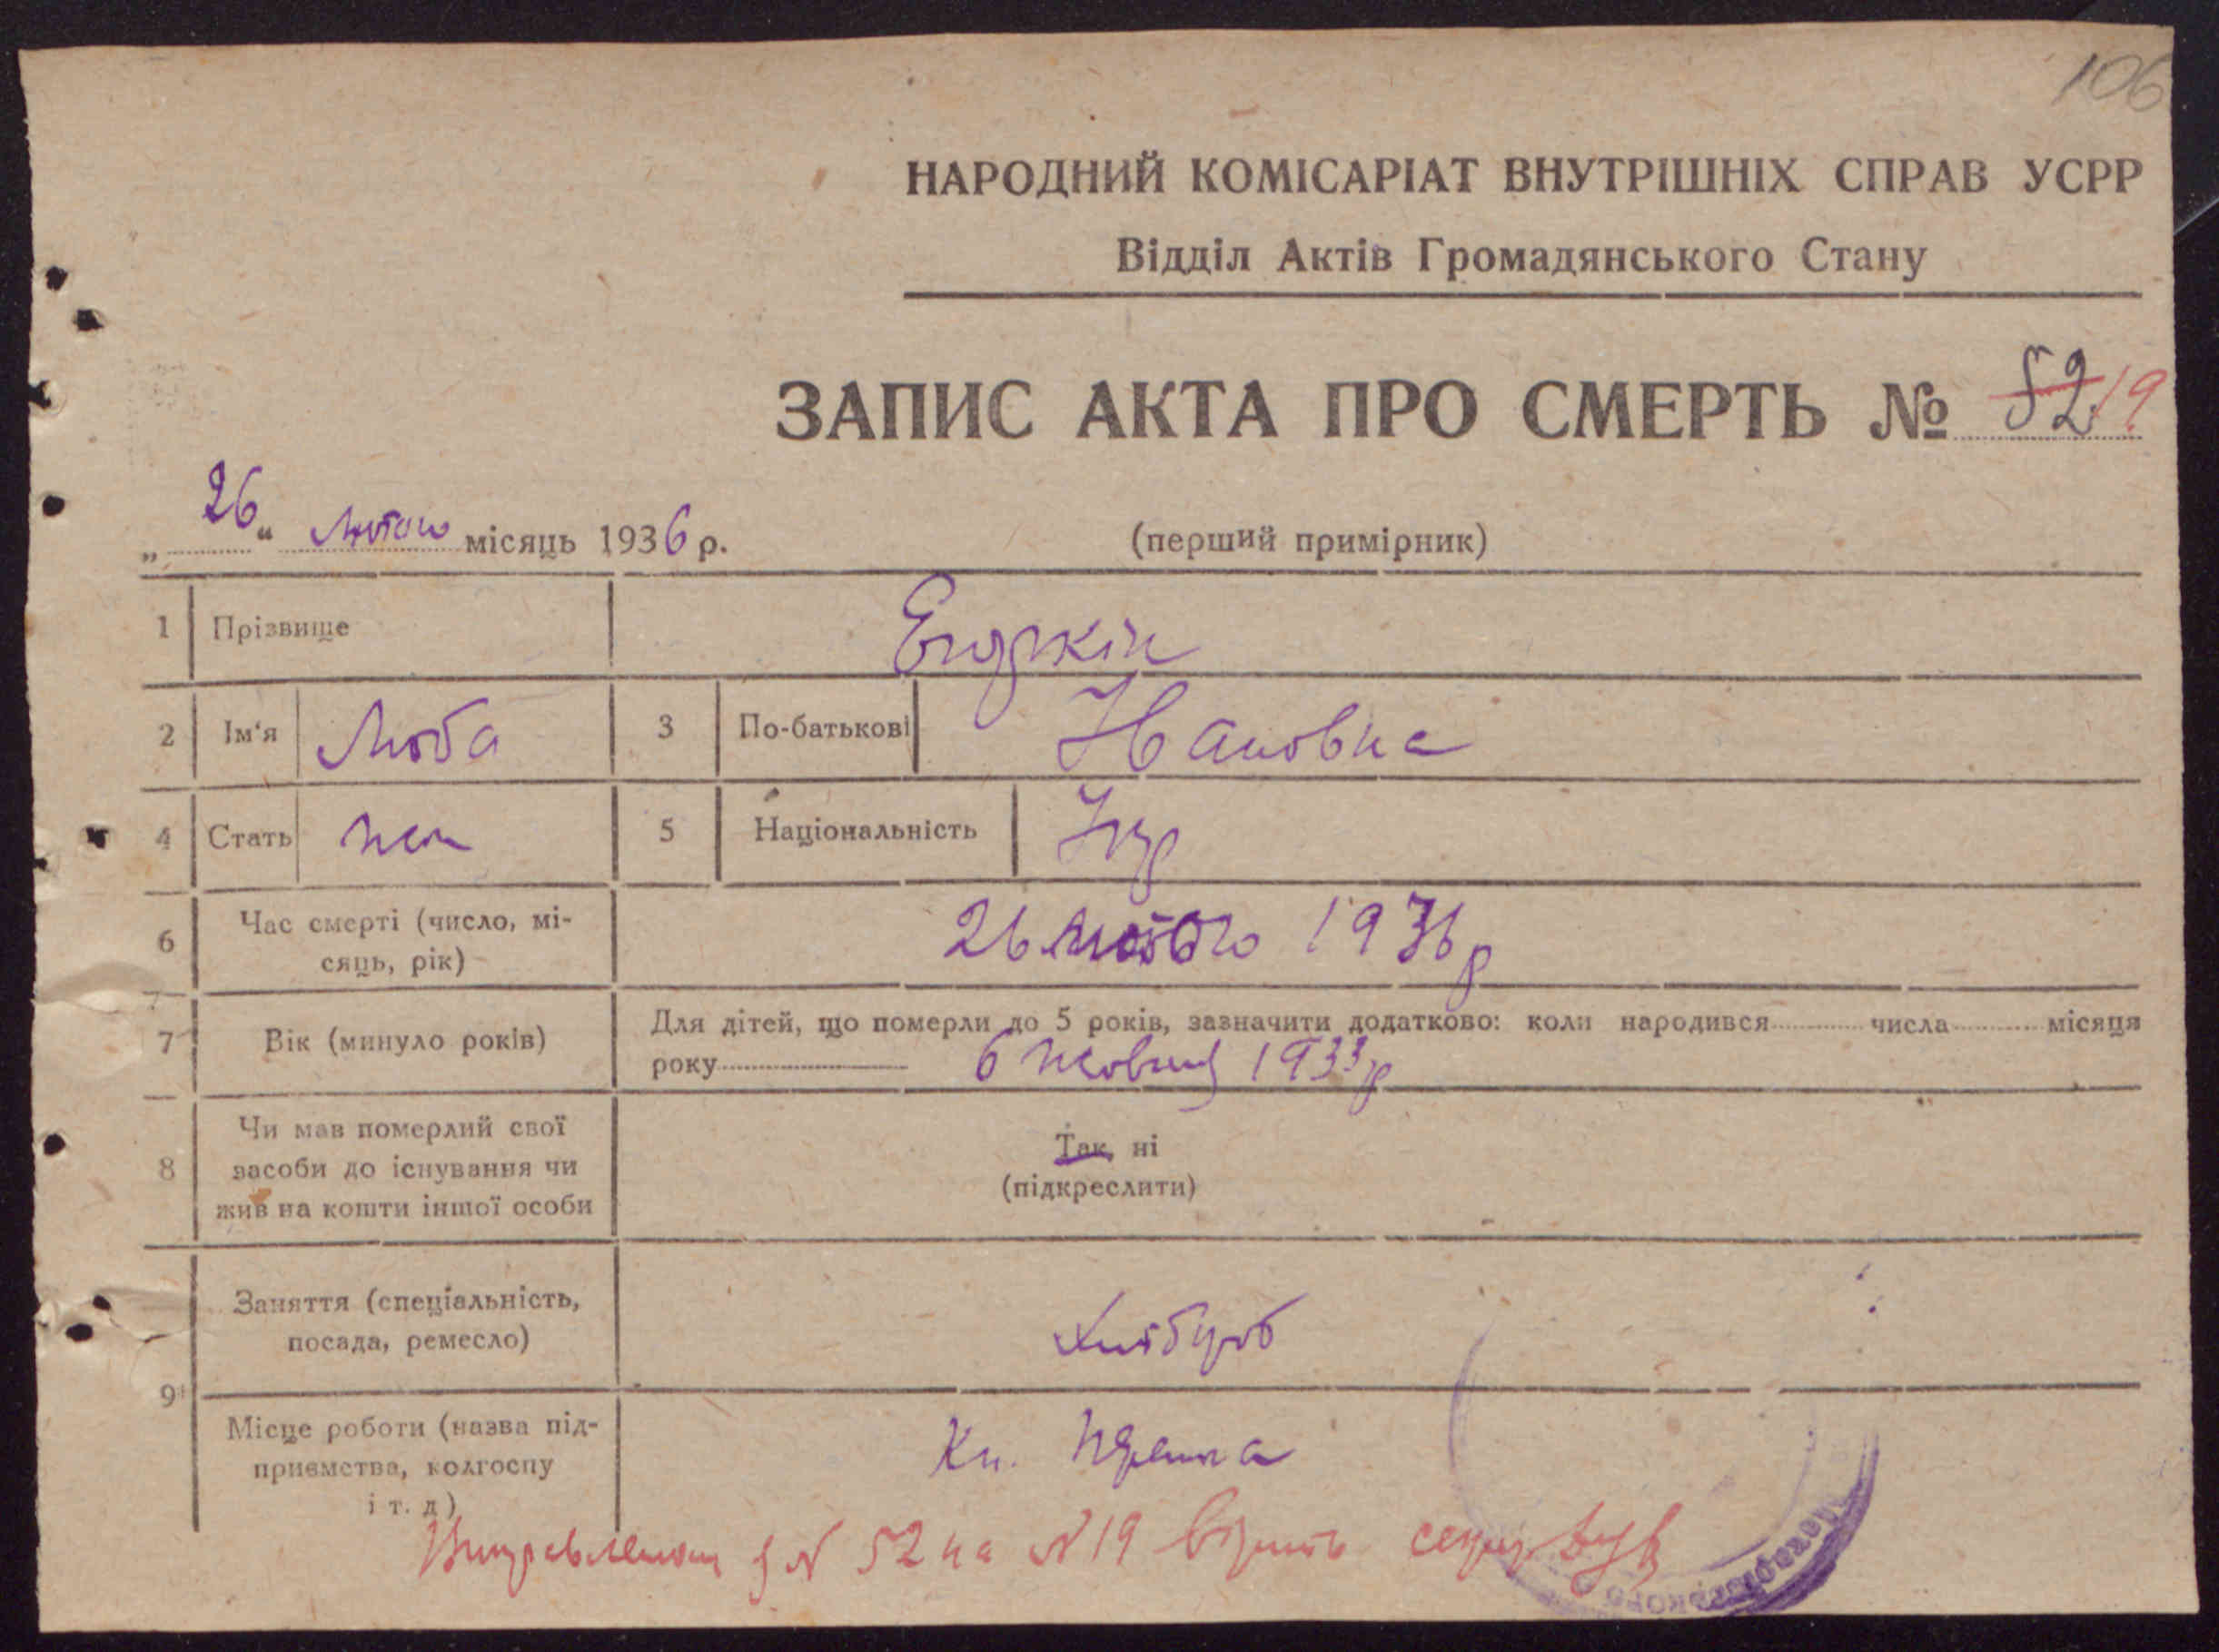 106
НАРОДНИЙ КОМІСАРІАТ ВНУТРІШНІХ СПРАВ УСРР
Відділ Актів Громадянського Стану
ЗАПИС АКТА ПРО СМЕРТЬ № 52 19
„26“ Лютого місяць 1936 р.
(перший примірник)
1 Прізвище
2 Ім'я Люба 3 По-батькові Івановна
4 Стать жін 5 Національність Укр
6 Час смерті (число, мі-
сяць, рік) 26 лютого 1936 р
7 Вік (минуло років) Для дітей, що померли до 5 років, зазначити додатково: коли народився числа місяця
року 6 жовтня 1933 р
8 Чи мав померлий свої
засоби до існування чи
жив на кошти іншої особи
Так, ні
(підкреслити)
9 Заняття (спеціальність,
посада, ремесло) Хлібороб
Місце роботи (назва під-
приємства, колгоспу
і т. д.)
N 52 на N 19